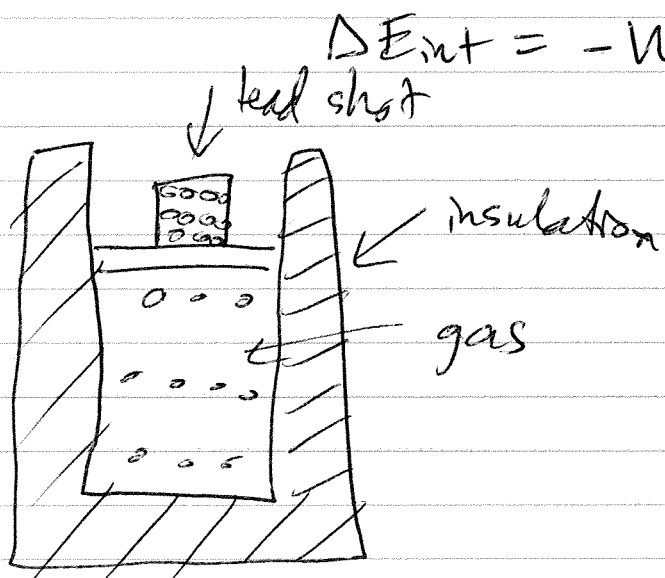 ΔEint = - W
lead shot
insulation
gas